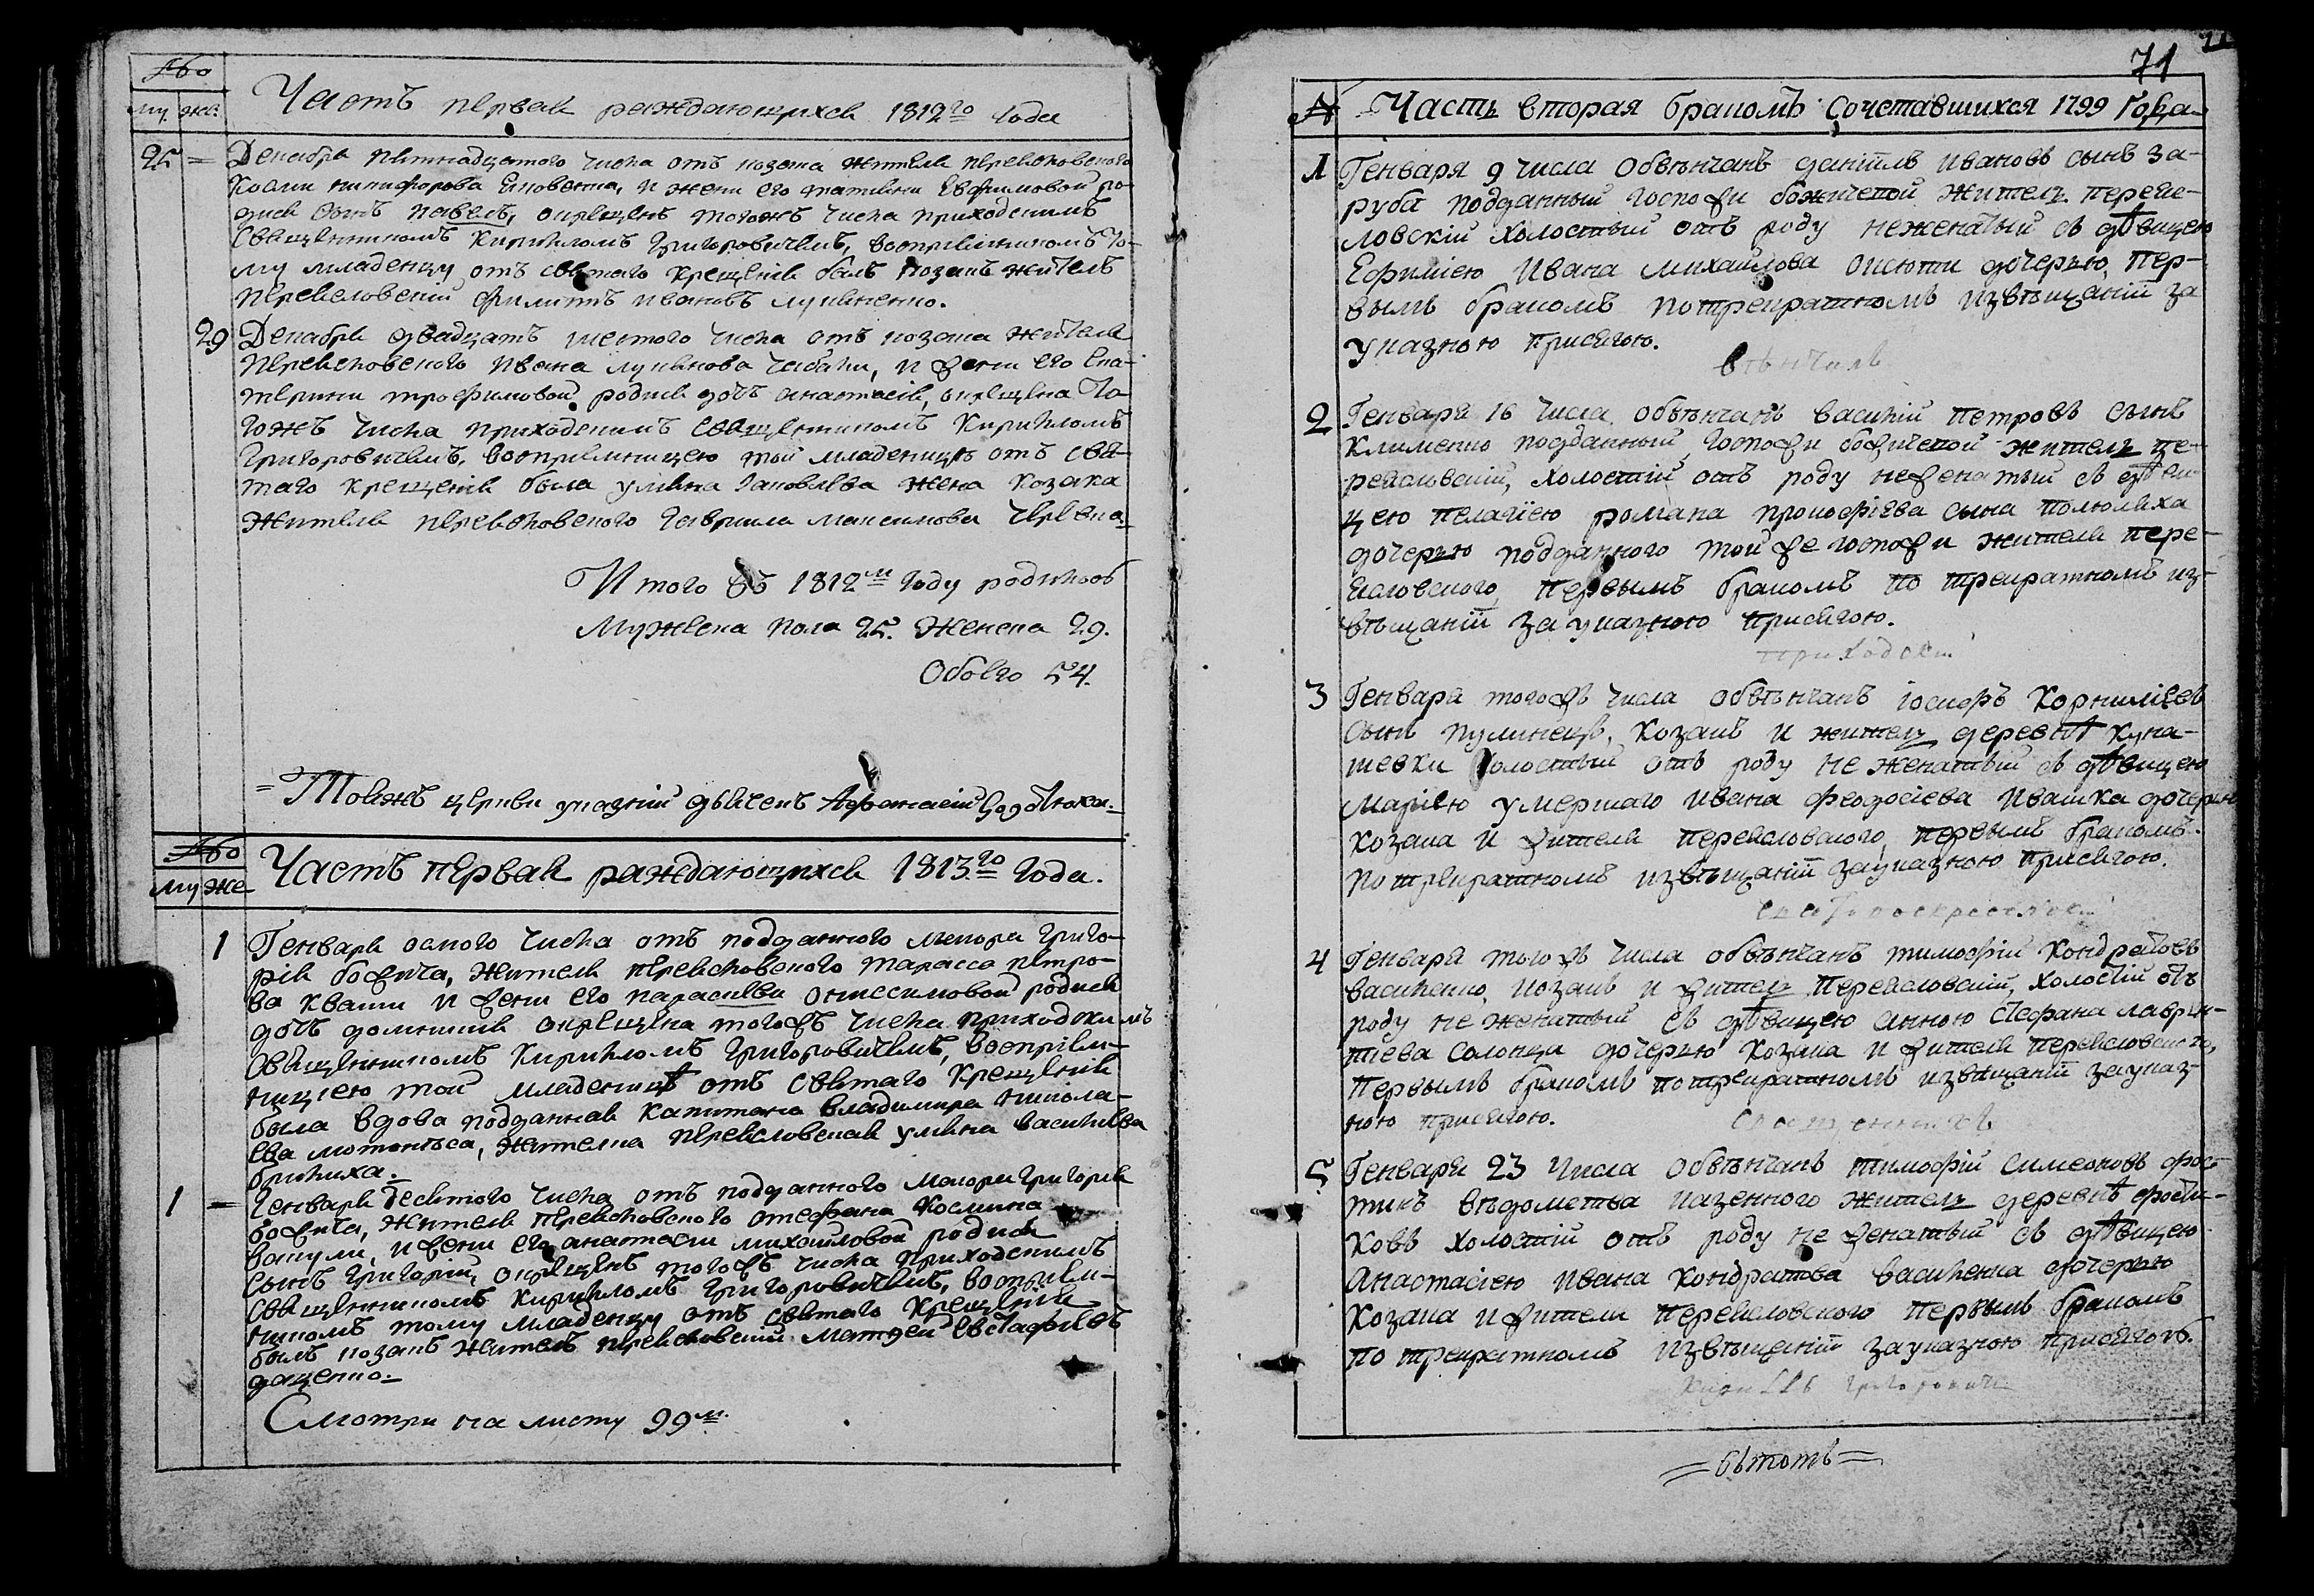 №
му. же.
Часть первая раждающихся 1812го года
25 = Декабря пятнадцатого числа отъ козака жителя переясловского
Космы никифорова и жени его татияни Евфимовой ро-
дися сынъ павелъ, окрещенъ тогожъ числа приходскимъ
Священникомъ Кириломъ Григоровичемъ, воспріемникомъ то-
му младенцу отъ святаго крещенія былъ козакъ житель
переясловскій филиппъ ивановъ лукяненко.
29 Декабря двадцать шестого числа отъ козака жителя
переясловского ивана лукянова чабака, и жени его Ека-
терини трофимовой родися дочь анастасія, окрещена то-
гожъ числа приходскимъ священникомъ Кириломъ
Григоровичемъ, воспріемницею той младеницѣ отъ свя-
таго крещенія была уляна яковлева жена козака
жителя переясловского гавриила максимова червека
Итого въ 1812м году родилось
Мужеска пола 25. Женска 29.
Обоего 54.
= Тояжъ церкви указній дьячекъ Афанасій
№
му же
Часть первая раждающихся 1813го года.
1 Генваря осмого числа отъ подданного меіора григо-
рія божича, жителя переясловского тарасса петро-
ва кваши и жени его параскеви онисимовой родися
дочь домникия окрещена тогожъ числа приходскимъ
Священникомъ Кириломъ Григоровичемъ, воспріем-
ницею той младеницѣ отъ святаго крещенія
была вдова подданная капитана владимира никола-
ева мотонтса, жителка переясловская уляна василіева
брюшиха.
1 = Генваря десятого числа отъ подданного маіора григорія
божича, жителя переясловского стефана космина
вакули, и жени его анастасіи михайловой родися
сынъ григорій, окрещенъ тогожъ числа приходскимъ
священникомъ Кириломъ Григоровичемъ, воспріем-
никомъ тому младенцу отъ святаго крещенія
былъ козакъ житель переясловскій матфей евстафіевъ
даценко.
Смотри на листу 99м.
71
№ Часть вторая бракомъ сочетавшихся 1799 Года
1 Генваря 9 числа обвѣнчанъ даніилъ ивановъ сынъ за-
руба подданный госпожи божичевой жителъ перея-
ловскій холостый отъ роду неженатый съ дѣвицею
Ефиміею ивана михайлова оксюти дочерью, пер-
вымъ бракомъ потрекратномъ извѣщаніи за
указною присягою.
вѣнчалъ
2 Генваря 16 числа обвѣнчанъ василій петровъ сынъ
Клименко подданный госпожи божичевой жителъ пе-
реясловскій, холостій отъ роду неженатый съ дѣви
цею пелагіею романа прокофіева сына полюляха
дочерью подданного той же госпожи жителя пере-
ясловского, первымъ бракомъ по трекратномъ из-
вѣщаніи за указною присягою.
приходскій
3 Генваря тогожъ числа обвѣнчанъ іосифъ Корниліевъ
сынъ кулинецъ, козакъ и жителъ деревнѣ Куна-
шевки холостый отъ роду не женатый съ дѣвицею
маріею умершаго ивана феодосіева ивашка дочерью
козака и жителя переясловского, первымъ бракомъ
потрекратномъ извѣщаніи зауказною присягою.
4 Генваря тогожъ числа обвѣнчанъ тимофій Кондратовъ
василенко, козакъ и жителъ переясловскій, холостій отъ
роду не женатый съ дѣвицею анною стефана лаврен-
тіева солонца дочерью козака и жителя переясловского,
первымъ бракомъ потрекратномъ извѣщаніи зауказ-
ною присягою.
священникъ
5 Генваря 23 числа обвѣнчанъ тимофій симеоновъ фос-
тикъ вѣдомства казенного жителъ деревнѣ фости-
ковъ холостій отъ роду не женатый съ дѣвицею
Анастасіею ивана кондратова василенка дочерью
козака и жителя переясловского первымъ бракомъ
по трекратномъ извѣщаніи зауказною присягою.
Кириллъ григоровичъ
= вѣтотъ =